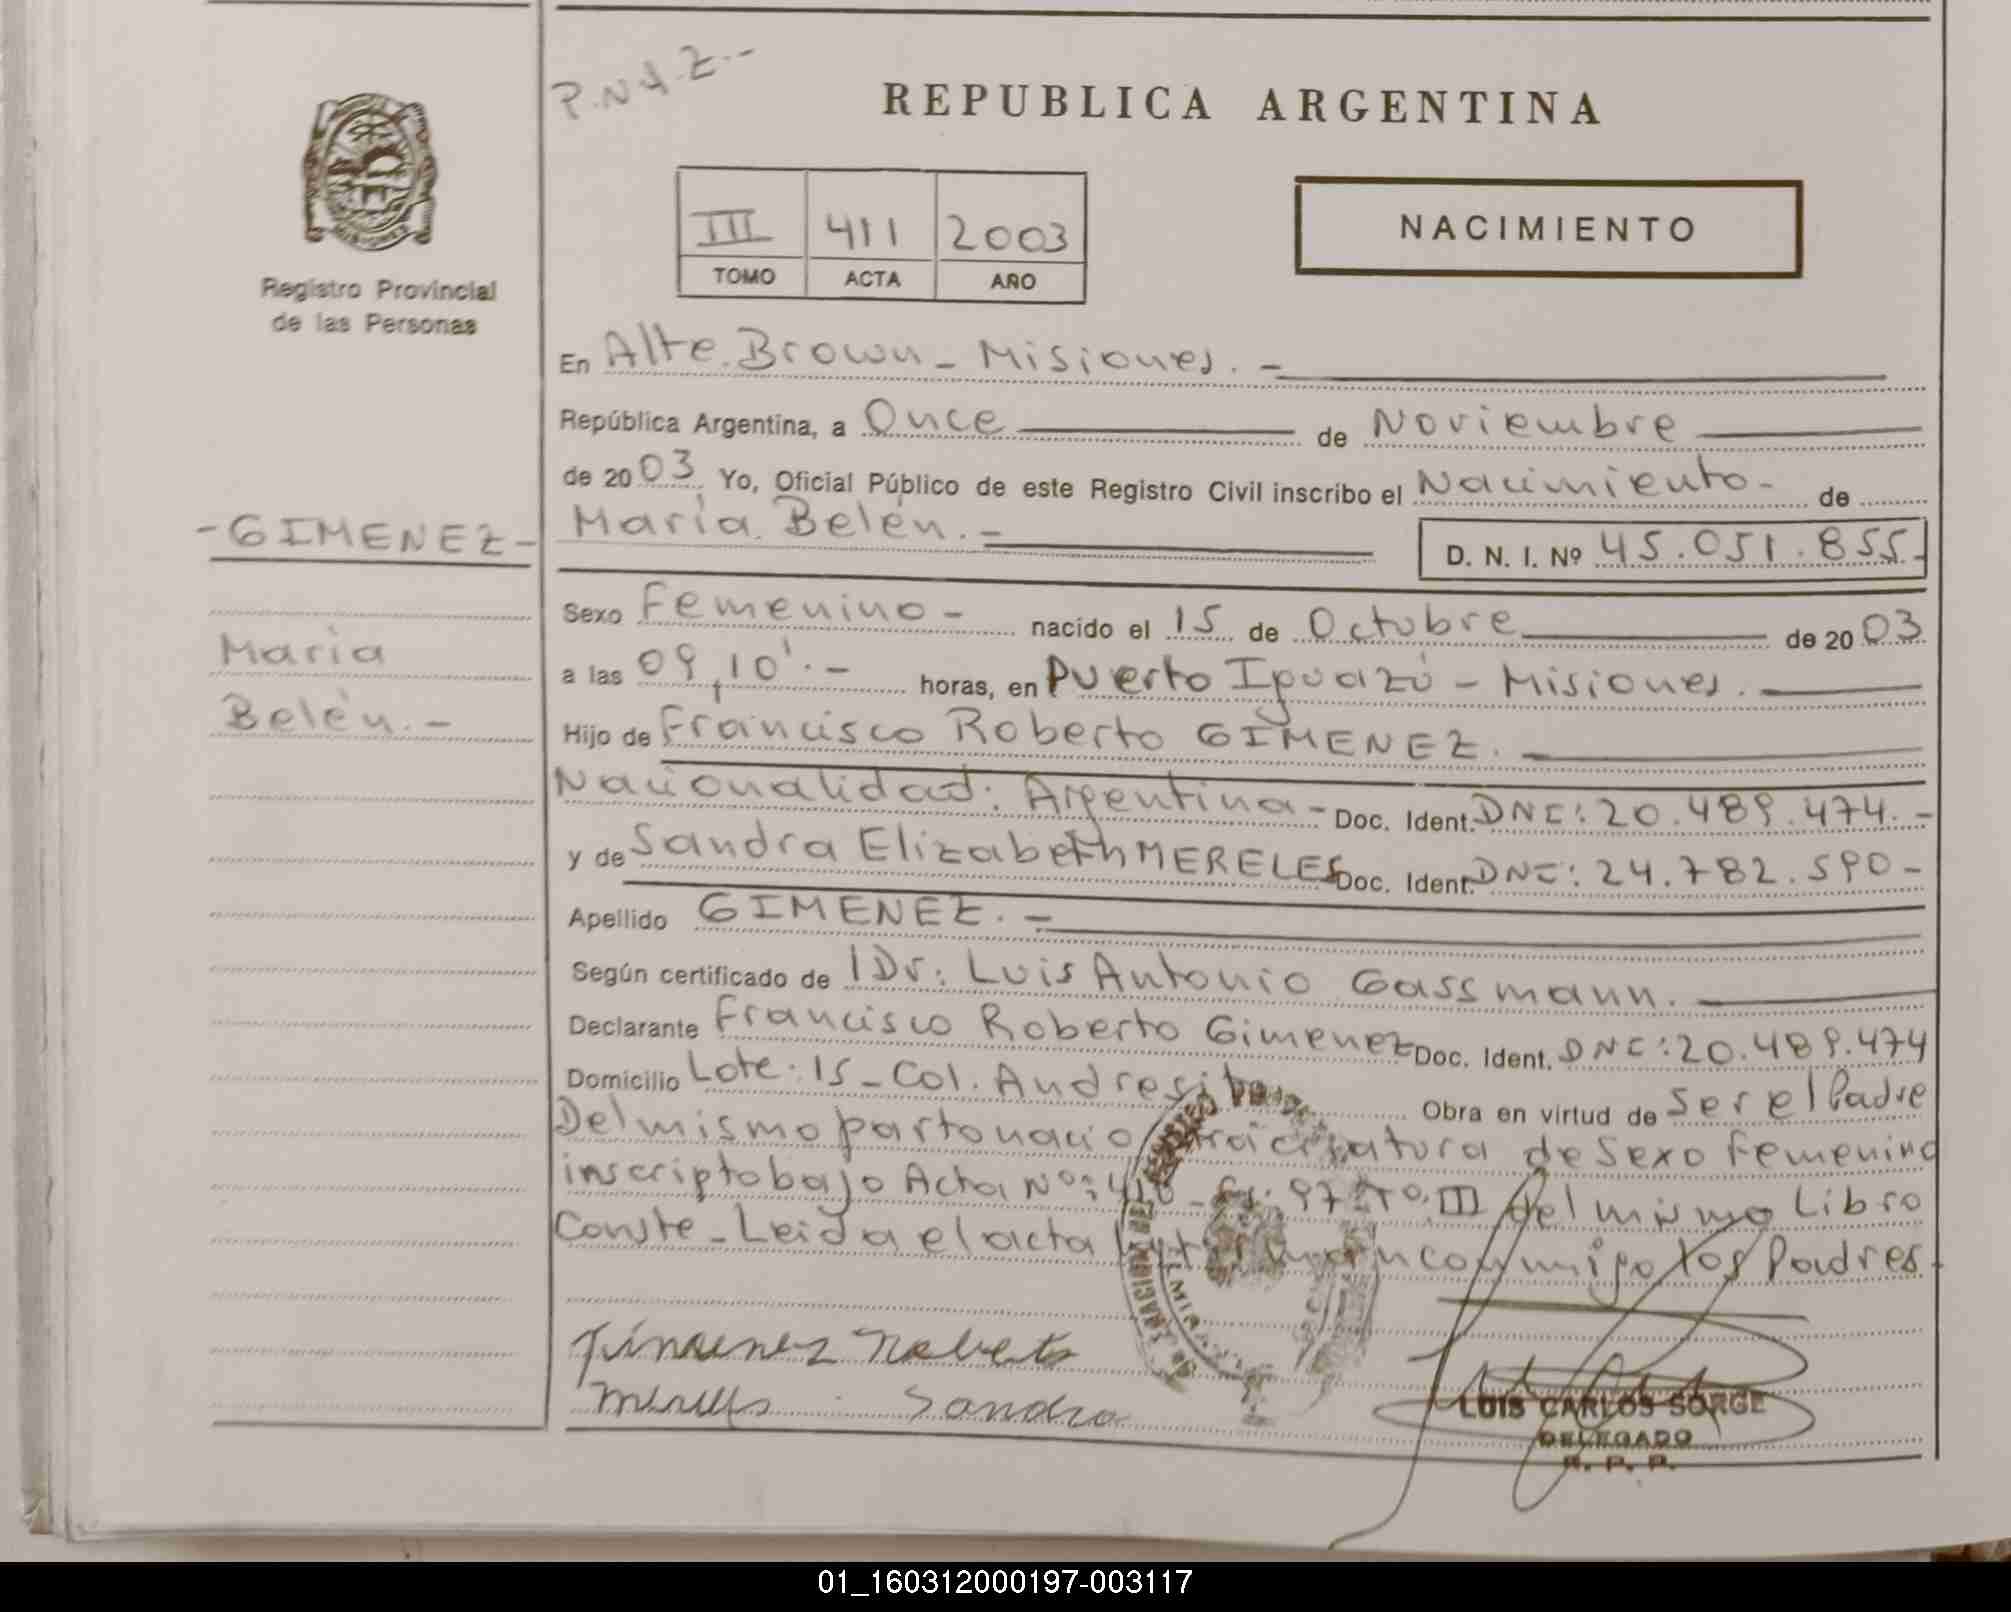 P.N.A.Z.-
REPUBLICA ARGENTINA
III 411 2003
TOMO ACTA AÑO
NACIMIENTO
Registro Provincial
de las Personas
En Alte. Brown - Misiones. -
República Argentina, a Once de Noviembre
de 2003 Yo, Oficial Público de este Registro Civil inscribo el Nacimiento - de
- GIMENEZ -
María Belén. -
D. N. I. Nº 45.051.855-
Sexo Femenino - nacido el 15 de Octubre de 2003
María
a las 09,10'. - horas, en Puerto Iguazú - Misiones.
Belén. -
Hijo de Francisco Roberto GIMENEZ.
Nacionalidad: Argentina - Doc. Ident. DNI: 20.489.474. -
y de Sandra Elizabeth MERELES Doc. Ident. DNI: 24.782.590 -
Apellido GIMENEZ. -
Según certificado de Dr: Luis Antonio Gassmann.
Declarante Francisco Roberto Gimenez Doc. Ident. DNI: 20.489.474
Domicilio Lote: 15 - Col. Andresito Obra en virtud de Ser el Padre
Del mismo parto nacio otra criatura de Sexo Femenino
inscripto bajo Acta Nº: 410 - Fs: 97 Tº. III del mismo Libro
Conste - Leida el acta conmigo los Padres.
Jimenez Roberto
Mereles Sandra
LUIS CARLOS SORGE
DELEGADO
R. P. P.
01_160312000197-003117